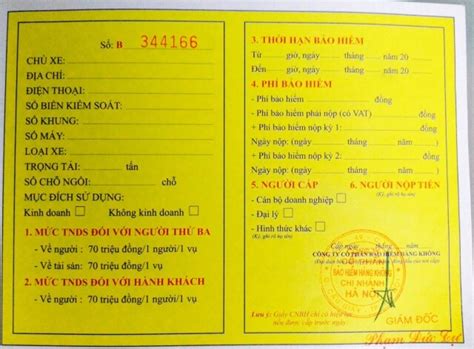 Số: B 344166
CHỦ XE:
ĐỊA CHỈ:
ĐIỆN THOẠI:
SỐ BIỂN KIỂM SOÁT:
SỐ KHUNG:
SỐ MÁY:
LOẠI XE:
TRỌNG TẢI: tấn
SỐ CHỖ NGỒI: chỗ
MỤC ĐÍCH SỬ DỤNG:
Kinh doanh Không kinh doanh
1. MỨC TNDS ĐỐI VỚI NGƯỜI THỨ BA
- Về người : 70 triệu đồng/1 người/1 vụ
- Về tài sản: 70 triệu đồng/1 vụ
2. MỨC TNDS ĐỐI VỚI HÀNH KHÁCH
- Về người : 70 triệu đồng/1 người/1 vụ
3. THỜI HẠN BẢO HIỂM
Từ giờ, ngày tháng năm 20
Đến giờ, ngày tháng năm 20
4. PHÍ BẢO HIỂM
- Phí bảo hiểm đồng
- Phí bảo hiểm phải nộp (có VAT) đồng
+ Phí bảo hiểm nộp kỳ 1: đồng
Ngày nộp: (ngày tháng năm )
+ Phí bảo hiểm nộp kỳ 2: đồng
Ngày nộp: (ngày tháng năm )
5. NGƯỜI CẤP 6. NGƯỜI NỘP TIỀN
(Ký, ghi rõ họ tên)
- Cán bộ doanh nghiệp
- Đại lý
- Hình thức khác
(Ký, ghi rõ họ tên)
Cấp ngày tháng năm
CÔNG TY CỔ PHẦN BẢO HIỂM HÀNG KHÔNG
BẢO HIỂM HÀNG KHÔNG
CHI NHÁNH
HÀ NỘI
GIÁM ĐỐC
Lưu ý: Giấy CNBH chỉ có hiệu lực
nếu được cấp trước ngày
Phạm Đức